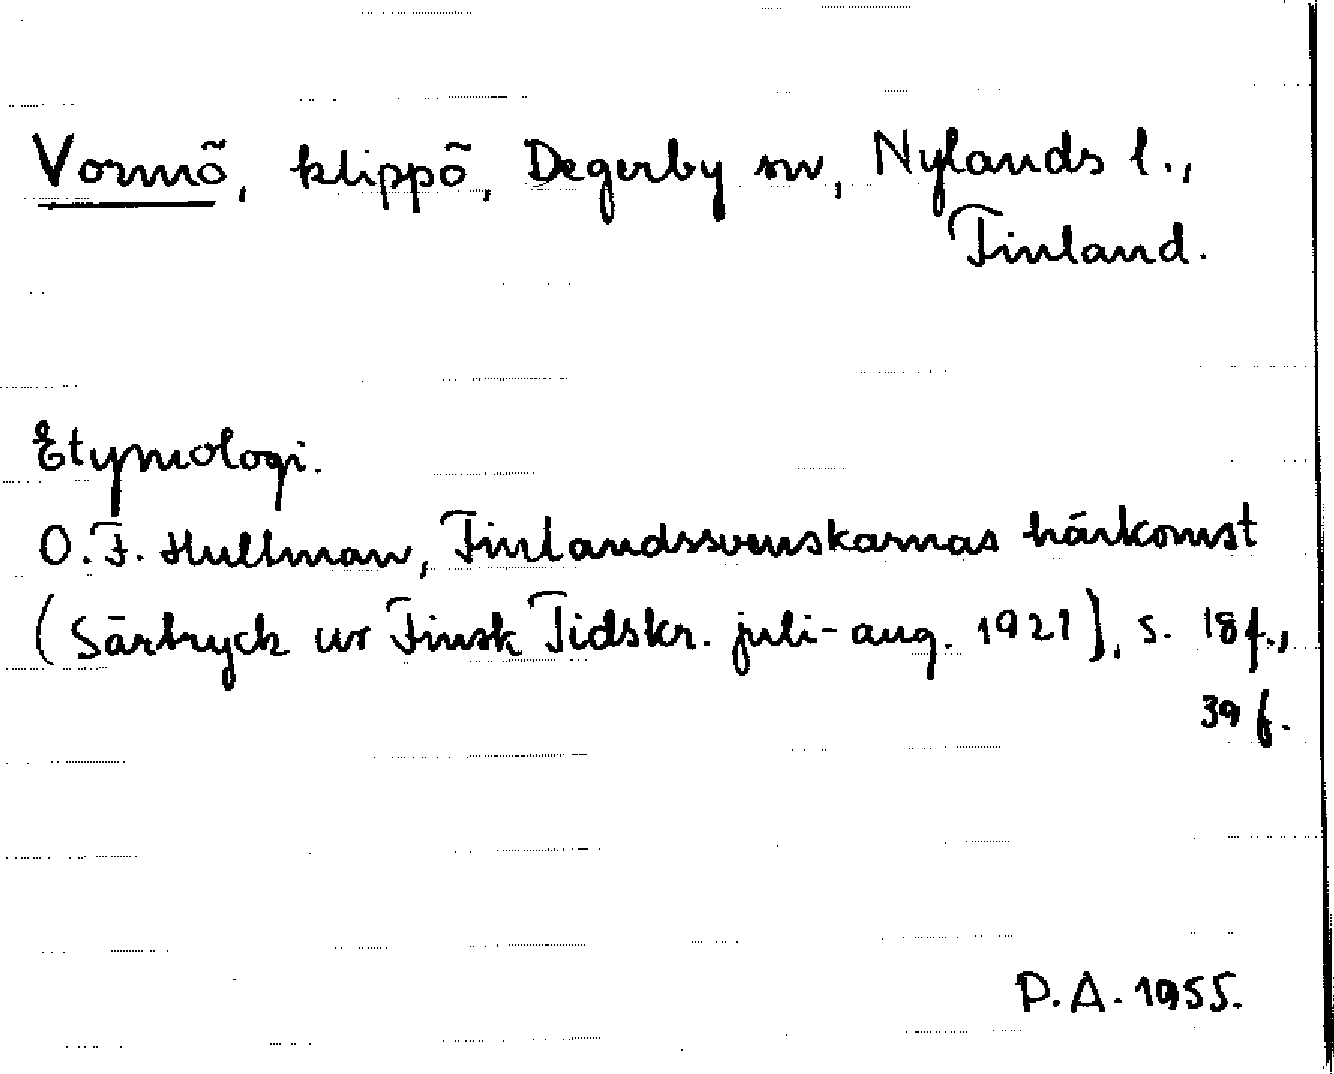 Vormö, klippö, Degerby sn, Nylands l.,
Finland.
Etymologi.
O.F. Hultman, Finlandssvenskarnas härkomst
(Särtryck ur Finsk Tidskr. juli-aug. 1921), s. 18 f.,
39 f.
P.A. 1955.